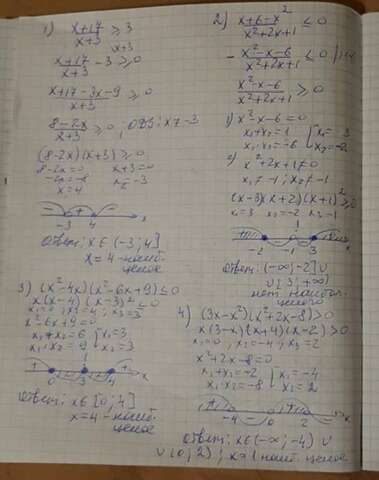 1) (x+17)/(x+3) ≥ 3
(x+17)/(x+3) - 3 ≥ 0
(x+17-3x-9)/(x+3) ≥ 0
(8-2x)/(x+3) ≥ 0; ОДЗ: x ≠ -3
(8-2x)(x+3) ≥ 0
8-2x=0 x+3=0
-2x=-8 x≠-3
x=4
-3 4 x
Ответ: x∈(-3; 4]
x=4 - наиб. целое
2) (x+6-x²)/(x²+2x+1) ≤ 0
- (x²-x-6)/(x²+2x+1) ≤ 0
(x²-x-6)/(x²+2x+1) ≥ 0
1) x²-x-6=0
x₁+x₂=1 { x₁=3
x₁·x₂=-6 x₂=-2
2) x²+2x+1≠0
x₁≠-1; x₂≠-1
(x-3)(x+2)(x+1)² ≥ 0
x₁=3 x₂=-2 x≠-1
-2 -1 3
Ответ: (-∞; -2] ∪
∪ [3; +∞)
нет наибол.
целого
3) (x²-4x)(x²-6x+9) ≤ 0
x(x-4)(x-3)² ≤ 0
x₁=0; x₂=4; x₃=3
x²-6x+9=0
x₁+x₂=6 { x₁=3
x₁·x₂=9 x₂=3
0 3 4 x
Ответ: x∈[0; 4]
x=4 - наиб.
целое
4) (3x-x²)(x²+2x-8)>0
x(3-x)(x+4)(x-2)>0
x₁=0, x₂=-4; x₃=2
x²+2x-8=0
x₁+x₂=-2 { x₁=-4
x₁·x₂=-8 x₂=2
-4 0 2 x
Ответ: x∈(-∞; -4) ∪
∪ (0; 2); x=1 наиб. целое